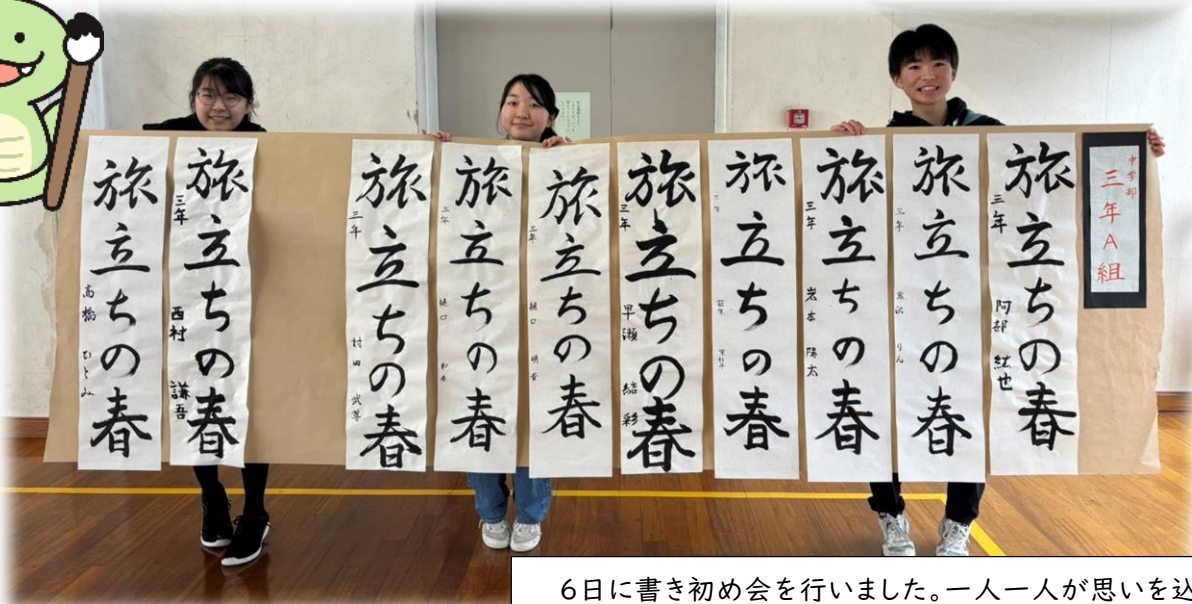 中学部
三年A組
旅立ちの春
三年 阿部 紘也
旅立ちの春
三年 りん
旅立ちの春
三年 岩本 陽太
旅立ちの春
旅立ちの春
三年 早瀬 結彩
旅立ちの春
三年 樋口
旅立ちの春
三年 樋口
旅立ちの春
三年 村田 武尊
旅立ちの春
三年 西村 謙吾
旅立ちの春
高橋 ひとみ
6日に書き初め会を行いました。一人一人が思いを込